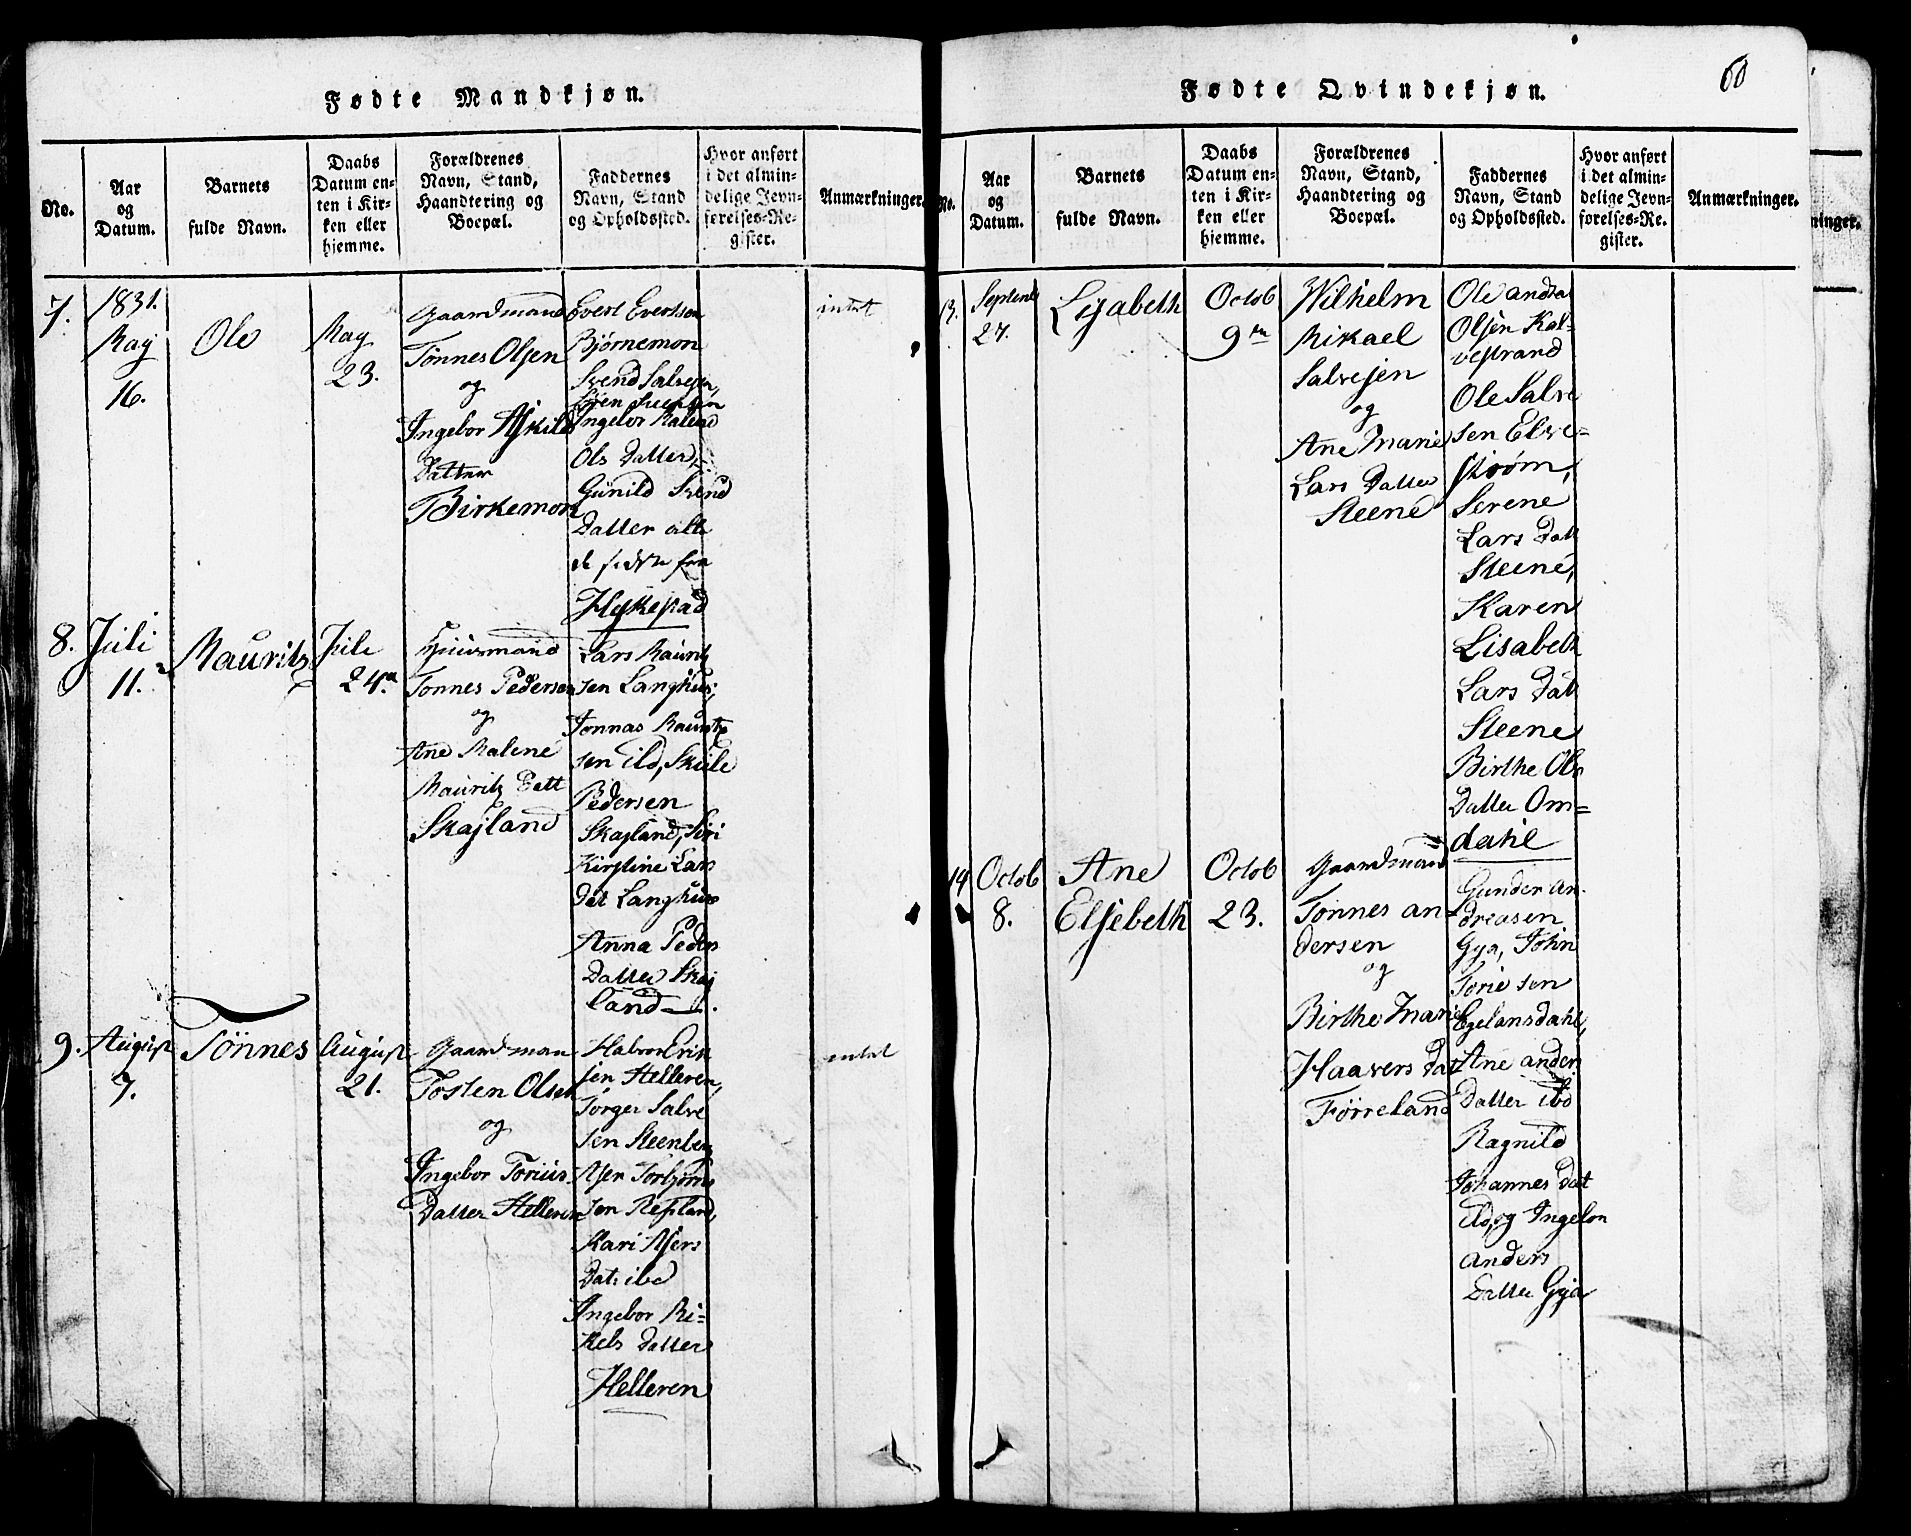 Fødte Mandkjøn.
No.
Aar
og
Datum.
Barnets
fulde Navn.
Daabs
Datum en-
ten i Kir-
ken eller
hjemme.
Forældrenes
Navn, Stand,
Haandtering og
Boepæl.
Faddernes
Navn, Stand
og Opholdssted.
Hvor anført
i det almin-
delige Jevn-
førelses-Re-
gister.
Anmærkninger.
7.
1831.
May
16.
Ole
May
23.
Gaardmand
Tønnes Olsen
og
Ingebor Askild
Datter
Birkemon
Evert Evertsen
Bjørnemon
Svend Salvesen,
Søren Svensen
Ingebor Malene
Ols Datter,
Gunild Svend
Datter alle
de sidste fra
Hyskestad
intet
8.
Juli
11.
Mauritz
Jule
24n
Huusmand
Tonnes Pedersen
og
Ane Malene
Mauritz Datt
Skajland
Lars Mauritz
sen Langhus,
Jonnas Mauritz
sen ibd, Skule
Pedersen
Skajland, Siri
Kirstine Lars
Dat Langhus
Anna Peders
Datter Skaj
land
9.
August
7.
Tönnes
August
21.
Gaardman
Tosten Olsen
og
Ingebor Torius
Datter Helleren
Halvor Erik
sen Helleren,
Torger Salve
sen Steenberg
Aser Torbjørns
sen Refsland,
Kari Asers
Dat: ibd
Ingebor Mi-
kels Datter
Helleren
intet
Fødte Qvindekjøn.
60
No.
Aar
og
Datum.
Barnets
fulde Navn.
Daabs
Datum en-
ten i Kir-
ken eller
hjemme.
Forældrenes
Navn, Stand,
Haandtering og
Boepæl.
Faddernes
Navn, Stand
og Opholdssted.
Hvor anført
i det almin-
delige Jevn-
førelses-Re-
gister.
Anmærkninger.
13.
Septemb
27.
Lisabeth
Octob
9de
Wilhelm
Mikael
Salvesen
og
Ane Marie
Lars Datter
Steene
Ole andrea
Olsen Kal-
vestrand
Ole Salve
sen Elve-
strøm,
Serene
Lars Datt
Steene,
Karen
Lisabeth
Lars Dat
Steene
Birthe Ols
Datter Om-
dahl
14
Octob
8.
Ane
Elsebeth
Octob
23.
Gaardmand
Tønnes an-
dersen
og
Birthe Marie
Haavers Dat
Førreland
Gunder An-
dreasen
Gya, John
Torie sen
Egelansdahl,
Ane anders
Datter ibd
Ragnild
Johannes Dat
ibd, og Ingebor
anders
Datter Gya
ninger.